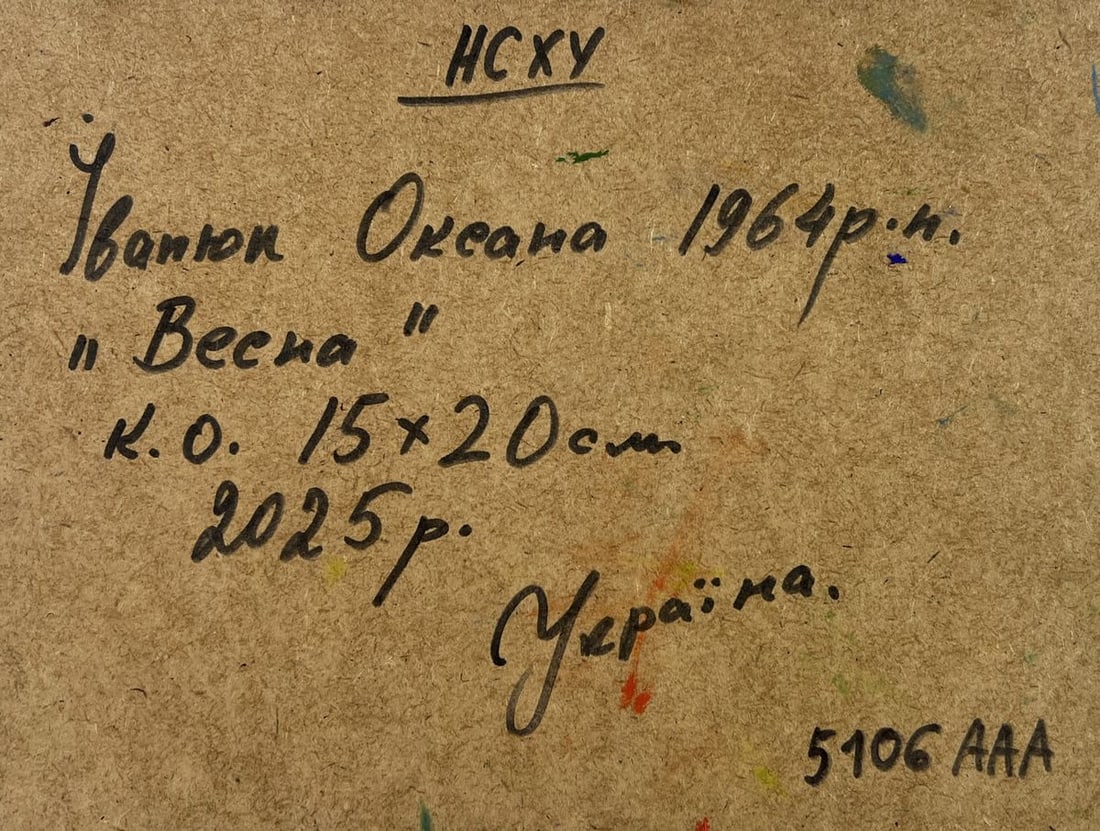 НСХУ
Іванюк Оксана 1964р.н.
„Весна"
к.о. 15×20см
2025р.
Україна.
5106 ААА